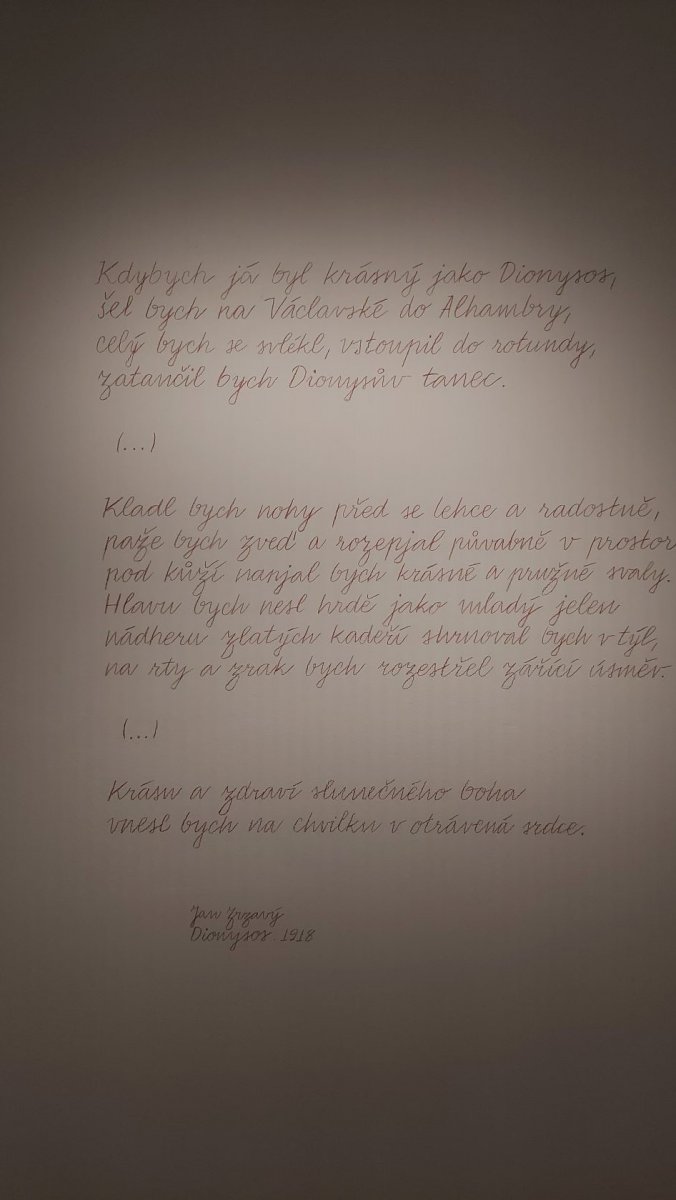 Kdybych já byl krásný jako Dionysos,
šel bych na Václavské do Alhambry,
celý bych se svlékl, vstoupil do rotundy,
zatančil bych Dionysův tanec.
(...)
Kladl bych nohy před se lehce a radostně,
paže bych zveď a rozepjal půvabně v prostor
pod kůží napjal bych krásné a pružné svaly.
Hlavu bych nesl hrdě jako mladý jelen
nádheru zlatých kadeří shrnoval bych v týl,
na rty a zrak bych rozestřel zářící úsměv.
(...)
Krásu a zdraví slunečného boha
vnesl bych na chvilku v otrávená srdce.
Jan Zrzavý
Dionysos. 1918